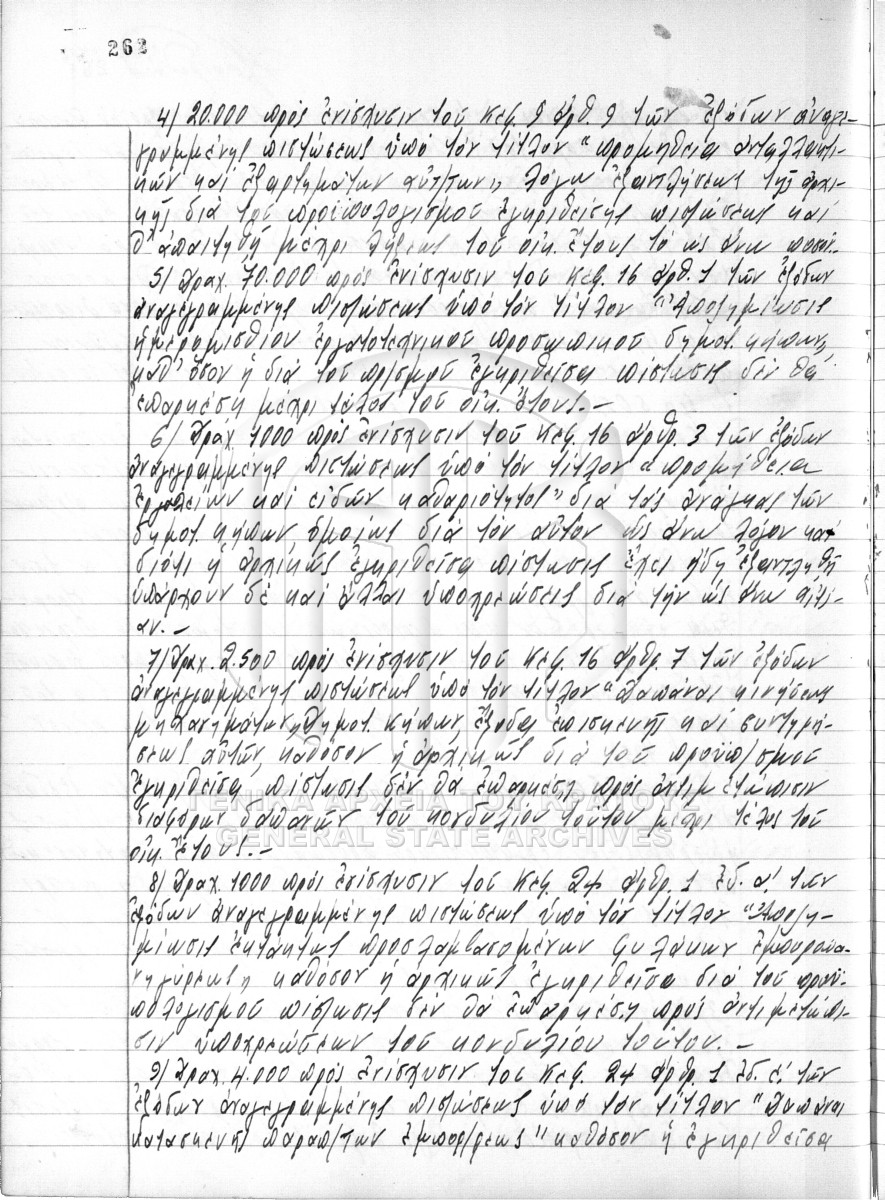 262
4) 20.000 πρός ἐνίσχυσιν τοῦ Κεφ. 9 ἄρθ. 9 τῶν ἐξόδων ἀναγε-
γραμμένης πιστώσεως ὑπό τόν τίτλον "προμήθεια ἀνταλλακτι-
κῶν καί ἐξαρτημάτων αὐτ/των", λόγω ἐξαντλήσεως τῆς ἀρχι-
κῆς διά τοῦ προϋπολογισμοῦ ἐγκριθείσης πιστώσεως καί
θ' ἀπαιτηθῆ μέχρι λήξεως τοῦ οἰκ. ἔτους τό ὡς ἄνω ποσόν.-
5) Δραχ. 70.000 πρός ἐνίσχυσιν τοῦ Κεφ. 16 ἄρθ. 1 τῶν ἐξόδων
ἀναγεγραμμένης πιστώσεως ὑπό τόν τίτλον "Ἀποζημίωσις
ἡμερομισθίου ἐργατοτεχνικοῦ προσωπικοῦ δημοτ. κήπων"
καθ' ὅσον ἡ διά τοῦ πρ/σμοῦ ἐγκριθεῖσα πίστωσις δέν θά
ἐπαρκέση μέχρι τέλος τοῦ οἰκ. ἔτους.-
6) Δραχ. 1000 πρός ἐνίσχυσιν τοῦ Κεφ. 16 ἄρθρ. 3 τῶν ἐξόδων
ἀναγεγραμμένης πιστώσεως ὑπό τόν τίτλον "προμήθεια
ἐργαλείων καί εἰδῶν καθαριότητος" διά τάς ἀνάγκας τῶν
δημοτ. κήπων ὁμοίως διά τόν αὐτόν ὡς ἄνω λόγον καί
διότι ἡ ἀρχικῶς ἐγκριθεῖσα πίστωσις ἔχει ἤδη ἐξαντληθῆ
ὑπάρχουν δέ καί ἄλλαι ὑποχρεώσεις διά τήν ὡς ἄνω αἰτί-
αν.-
7) Δραχ. 2.500 πρός ἐνίσχυσιν τοῦ Κεφ. 16 ἄρθρ. 7 τῶν ἐξόδων
ἀναγεγραμμένης πιστώσεως ὑπό τόν τίτλον "Δαπάναι κινήσεως
μηχανημάτων Δημοτ. Κήπων ἔξοδα ἐπισκευῆς καί συντηρή-
σεως αὐτῶν, καθόσον ἡ ἀρχικῶς διά τοῦ προϋπ/σμοῦ
ἐγκριθεῖσα πίστωσις δέν θά ἐπαρκέση πρός ἀντιμετώπισιν
διαφόρων δαπανῶν τοῦ κονδυλίου τούτου μέχρι τέλος τοῦ
οἰκ. ἔτους.-
8) Δραχ. 1000 πρός ἐνίσχυσιν τοῦ Κεφ. 24 ἄρθρ. 1 ἐδ. α' τῶν
ἐξόδων ἀναγεγραμμένης πιστώσεως ὑπό τόν τίτλον "Ἀποζη-
μίωσις ἐκτάκτως προσλαμβανομένων φυλάκων ἐμποροπα-
νηγύρεως" καθόσον ἡ ἀρχικῶς ἐγκριθεῖσα διά τοῦ προϋ-
πολογισμοῦ πίστωσις δέν θά ἐπαρκέση πρός ἀντιμετώπι-
σιν ὑποχρεώσεων τοῦ κονδυλίου τούτου.-
9) Δραχ. 4.000 πρός ἐνίσχυσιν τοῦ Κεφ. 24 ἄρθρ. 1 ἐδ. ε' τῶν
ἐξόδων ἀναγεγραμμένης πιστώσεως ὑπό τόν τίτλον "Δαπάναι
κατασκευῆς παραπ/των ἐμπορ/ρεως" καθόσον ἡ ἐγκριθεῖσα
ΓΕΝΙΚΑ ΑΡΧΕΙΑ ΤΟΥ ΚΡΑΤΟΥΣ
GENERAL STATE ARCHIVES